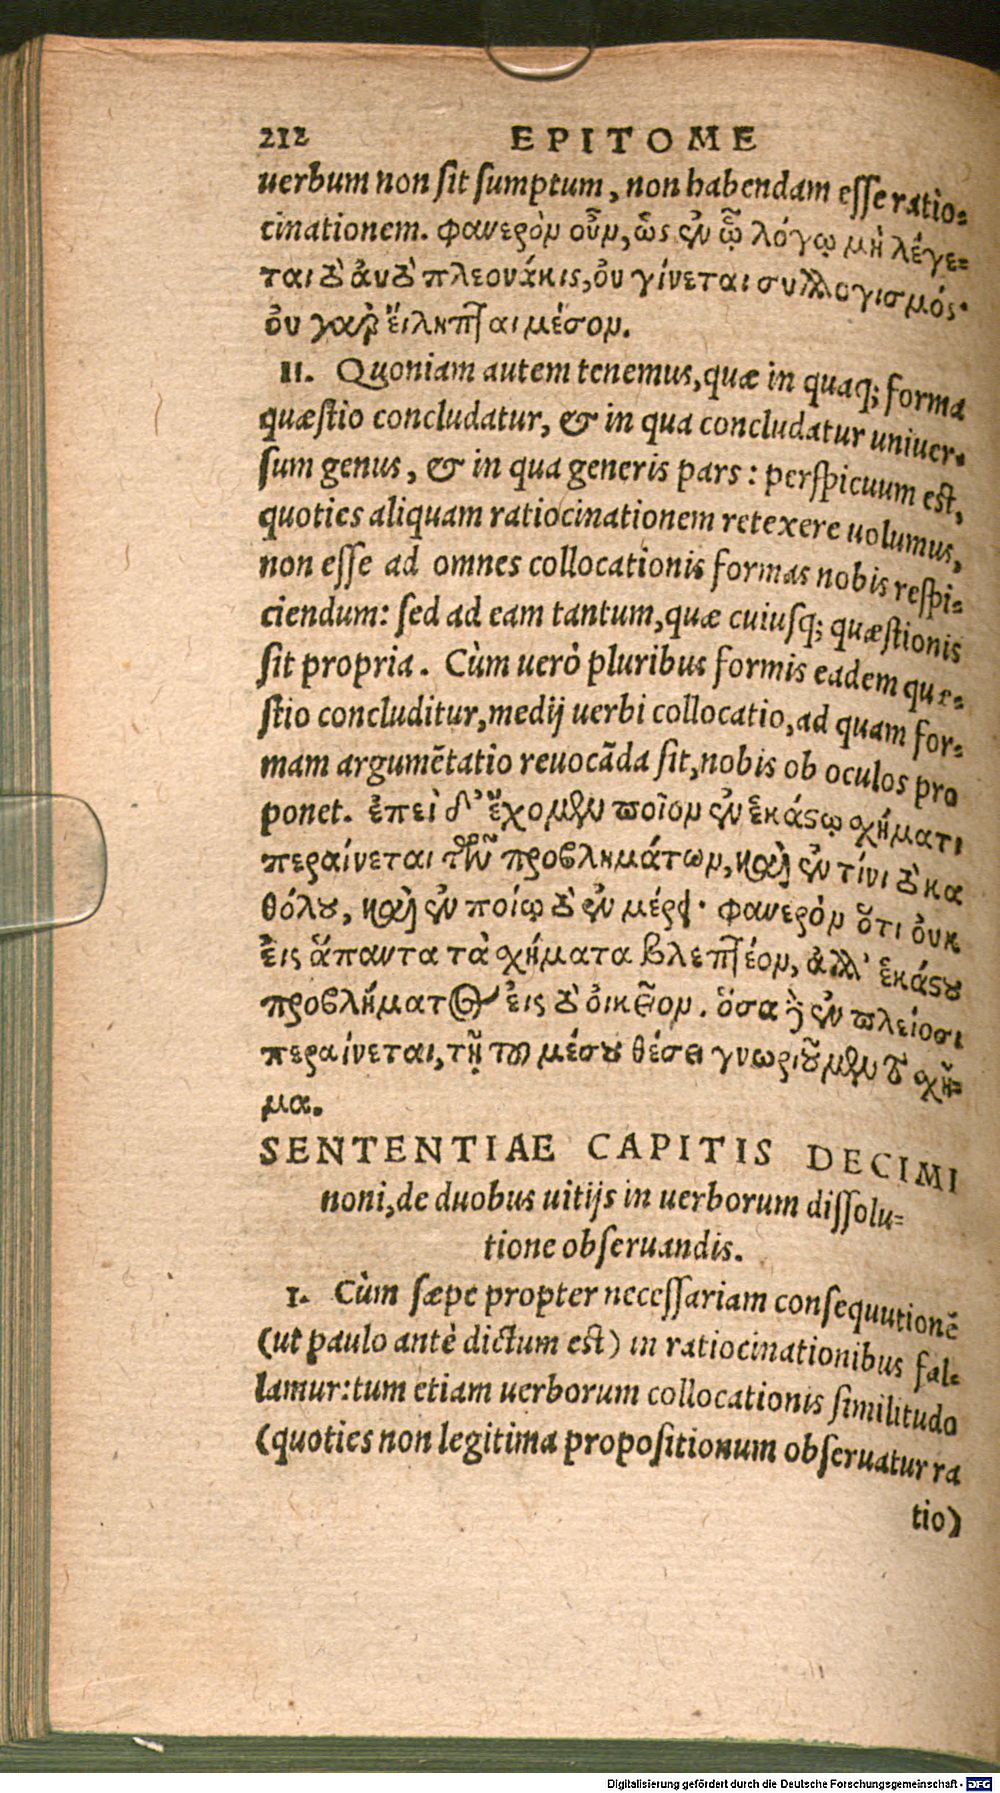 212 EPITOME
uerbum non sit sumptum, non habendam esse ratio-
cinationem. φανερὸν οὖν, ὡς ἐν ᾧ λόγῳ μὴ λέγε-
ται τὸ αὐτὸ πλεονάκις, οὐ γίνεται συλλογισμός·
οὐ γὰρ εἴληπται μέσον.
II. Quoniam autem tenemus, quæ in quaq; forma
quæstio concludatur, & in qua concludatur uniuer-
sum genus, & in qua generis pars: perspicuum est,
quoties aliquam ratiocinationem retexere uolumus,
non esse ad omnes collocationis formas nobis respi-
ciendum: sed ad eam tantum, quæ cuiusq; quæstionis
sit propria. Cùm uerò pluribus formis eadem quæ-
stio concluditur, medij uerbi collocatio, ad quam for-
mam argumētatio reuocāda sit, nobis ob oculos pro
ponet. ἐπεὶ δ' ἔχομεν ποῖον ἐν ἑκάστῳ σχήματι
περαίνεται τῶν προβλημάτων, καὶ ἐν τίνι τὸ κα
θόλου, καὶ ἐν ποίῳ τὸ ἐν μέρει· φανερὸν ὅτι οὐκ
εἰς ἅπαντα τὰ σχήματα βλεπτέον, ἀλλ' ἑκάστου
προβλήματος εἰς τὸ οἰκεῖον. ὅσα δ' ἐν πλείοσι
περαίνεται, τῇ τοῦ μέσου θέσει γνωριοῦμεν τὸ σχῆ-
μα.
SENTENTIAE CAPITIS DECIMI
noni, de duobus uitijs in uerborum dissolu-
tione obseruandis.
I. Cùm sæpe propter necessariam consequutionē
(ut paulo antè dictum est) in ratiocinationibus fal-
lamur: tum etiam uerborum collocationis similitudo
(quoties non legitima propositionum obseruatur ra
tio)
Digitalisierung gefördert durch die Deutsche Forschungsgemeinschaft - DFG